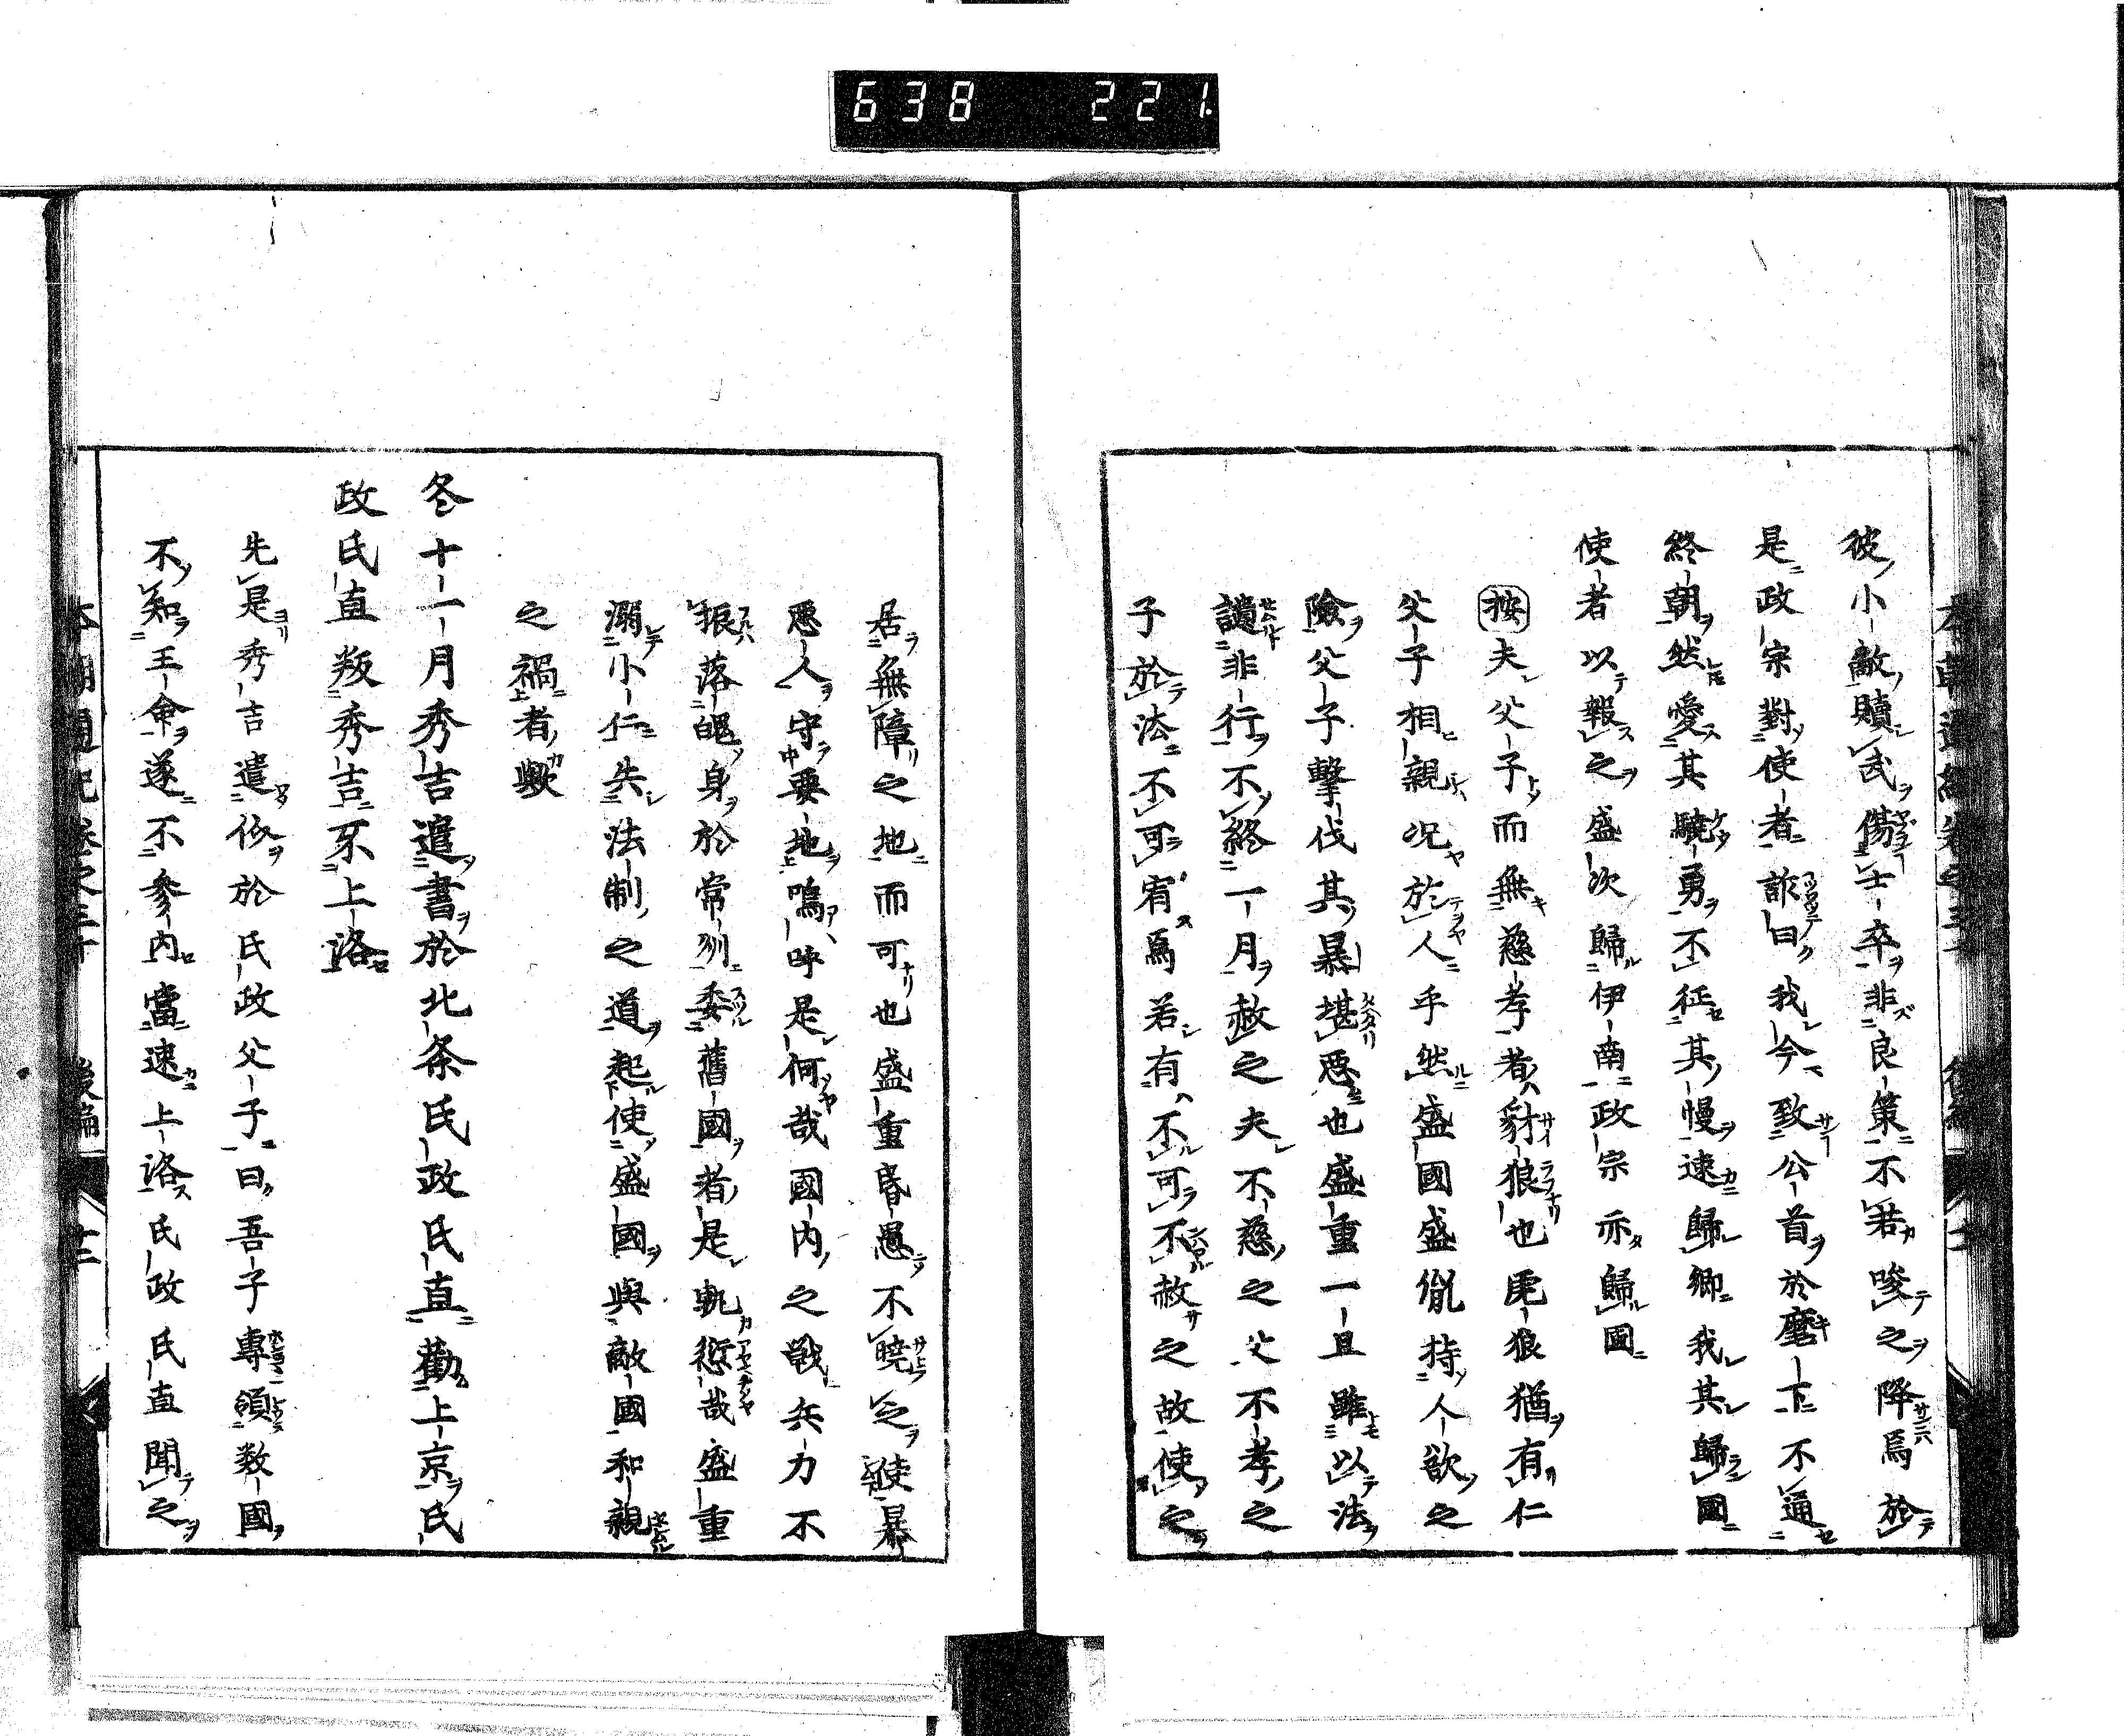 638 221
彼小敵贖武傷士卒非良策不若唆之降焉於
是政宗對使者詐曰我今致公首於麾下不通
終朝然愛其驍勇不征其慢速歸卿我其歸國
使者以報之盛次歸伊南政宗亦歸國
按夫父子而無慈孝者豺狼也乕狼猶有仁
父子相親况於人乎然盛國盛胤持人欲之
險父子擊伐其暴堪惡也盛重一旦雖以法
譴非行不終一月赦之夫不慈之父不孝之
子於法不可宥焉若有不可不赦之故使之
居無障之地而可也盛重昏愚不曉之使暴
惡人守要地嗚呼是何哉國内之戰兵力不
振落魄身於常州委舊國者是軌愆哉盛重
溺小仁失法制之道起使盛國與敵國和親
之禍者歟
冬十一月秀吉遣書於北条氏政氏直勸上京氏
政氏直叛秀吉不上洛
先是秀吉遣伻於氏政父子曰吾子專領数國
不知王命遂不參内當速上洛氏政氏直聞之
本朝通紀卷之三十 後編 廿二